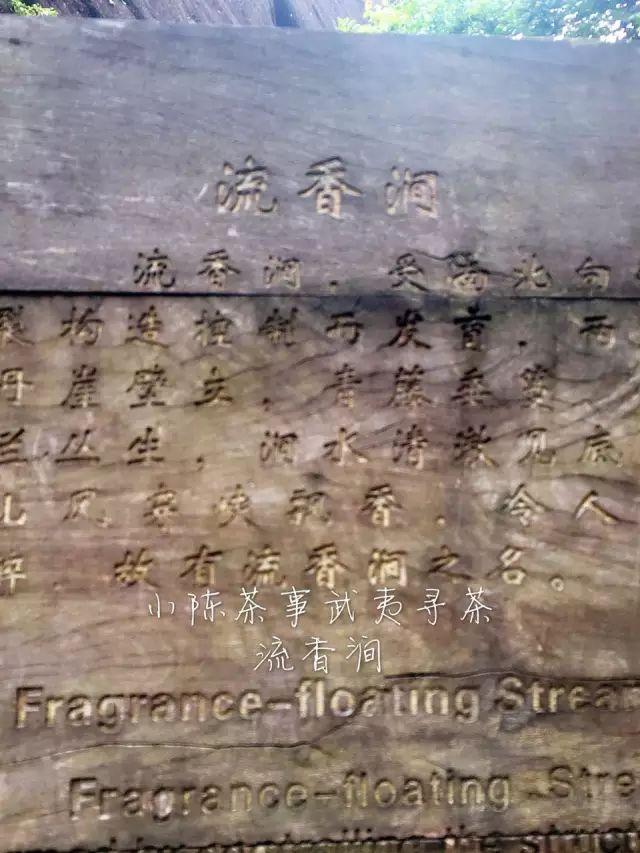 流香涧
流香涧，受南北向
裂构造控制而发育，两
丹崖壁立，青藤垂蔓、
兰丛生，涧水清澈见底
儿风穿峡飘香，令人
醉，故有流香涧之名。
小陈茶事武夷寻茶
流香涧
Fragrance-floating Stream
Fragrance-floating Stre
controlling the struct